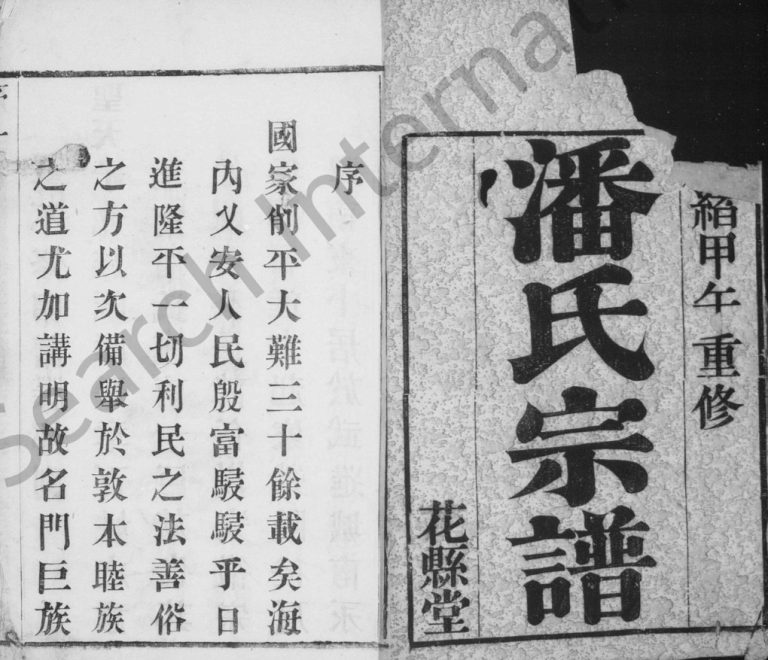 緒甲午重修
潘氏宗譜
花縣堂
序
國家削平大難三十餘載矣海
內乂安人民殷富駸駸乎日
進隆平一切利民之法善俗
之方以次備舉於敦本睦族
之道尤加講明故名門巨族
Search Internati